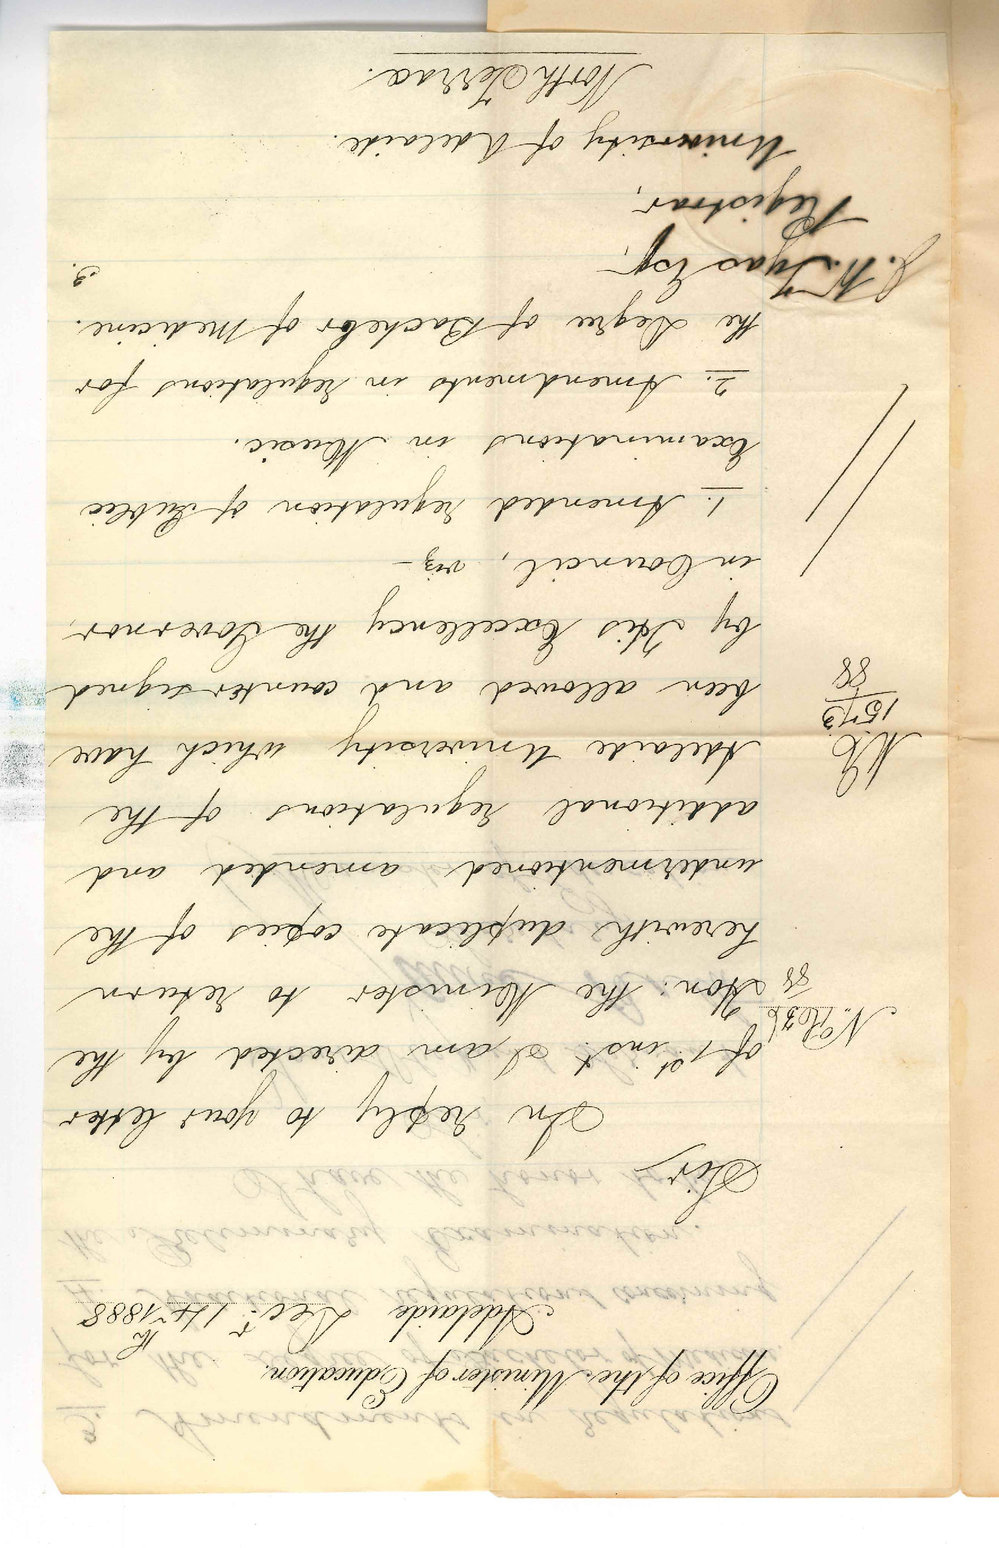 Office of the Minister of Education.
Adelaide Decr. 14th 1888
Sir,
In reply to your letter
of 1st inst. I am directed by the
Hon: the Minister to return
herewith duplicate copies of the
undermentioned amended and
additional regulations of the
Adelaide University which have
been allowed and countersigned
by His Excellency the Governor,
in Council, viz –
1. Amended regulation of Public
Examinations in Music.
2. Amendments in regulations for
the Degree of Bachelor of Medicine.
3.
J. W. Tyas Esq.,
Registrar,
University of Adelaide.
North Terrace.
No.
88
M.E.
1573
88